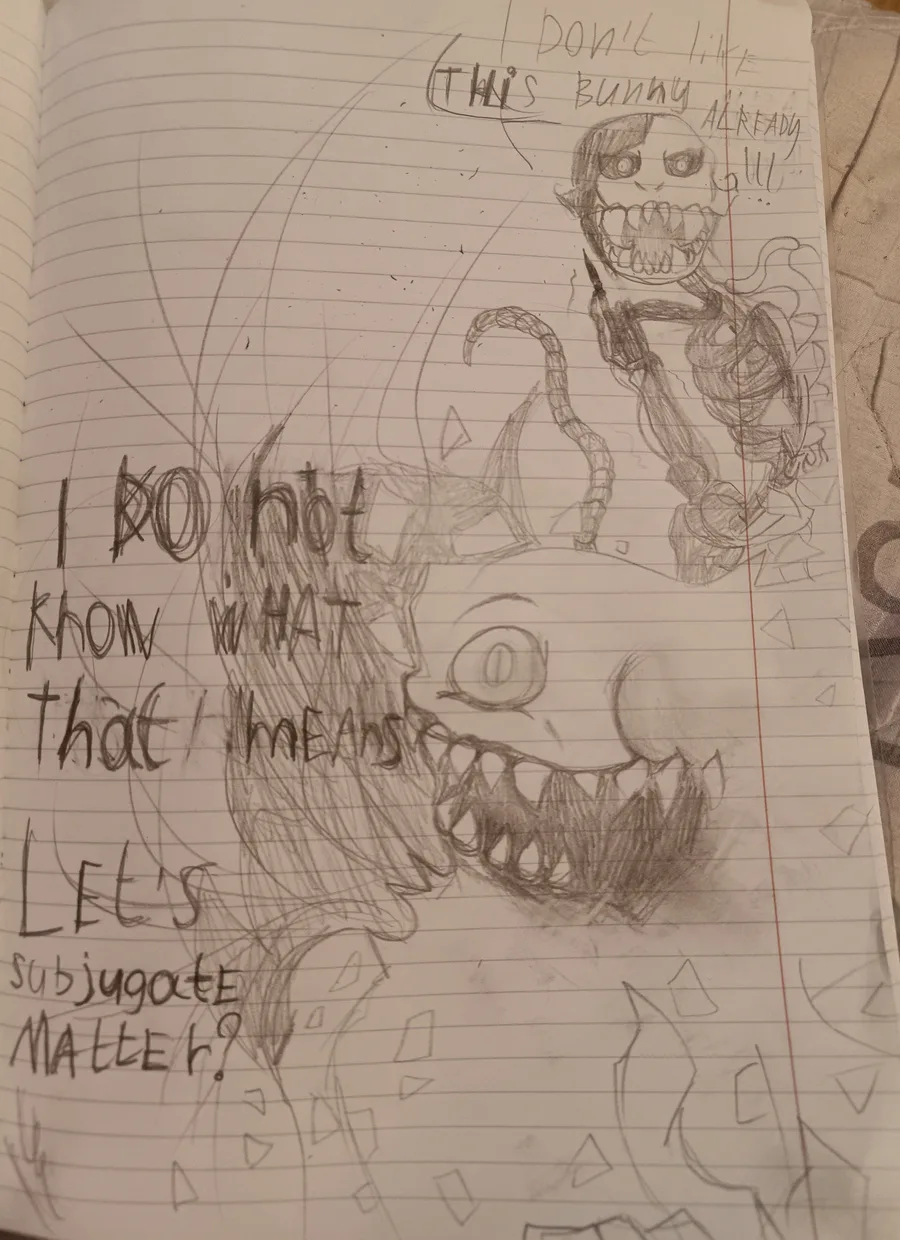 I DON't likE
THis Bunny
ALREADY
!!!
I DO not
know wHAT
that mEAns
LEt's
subjugatE
MAttEr?